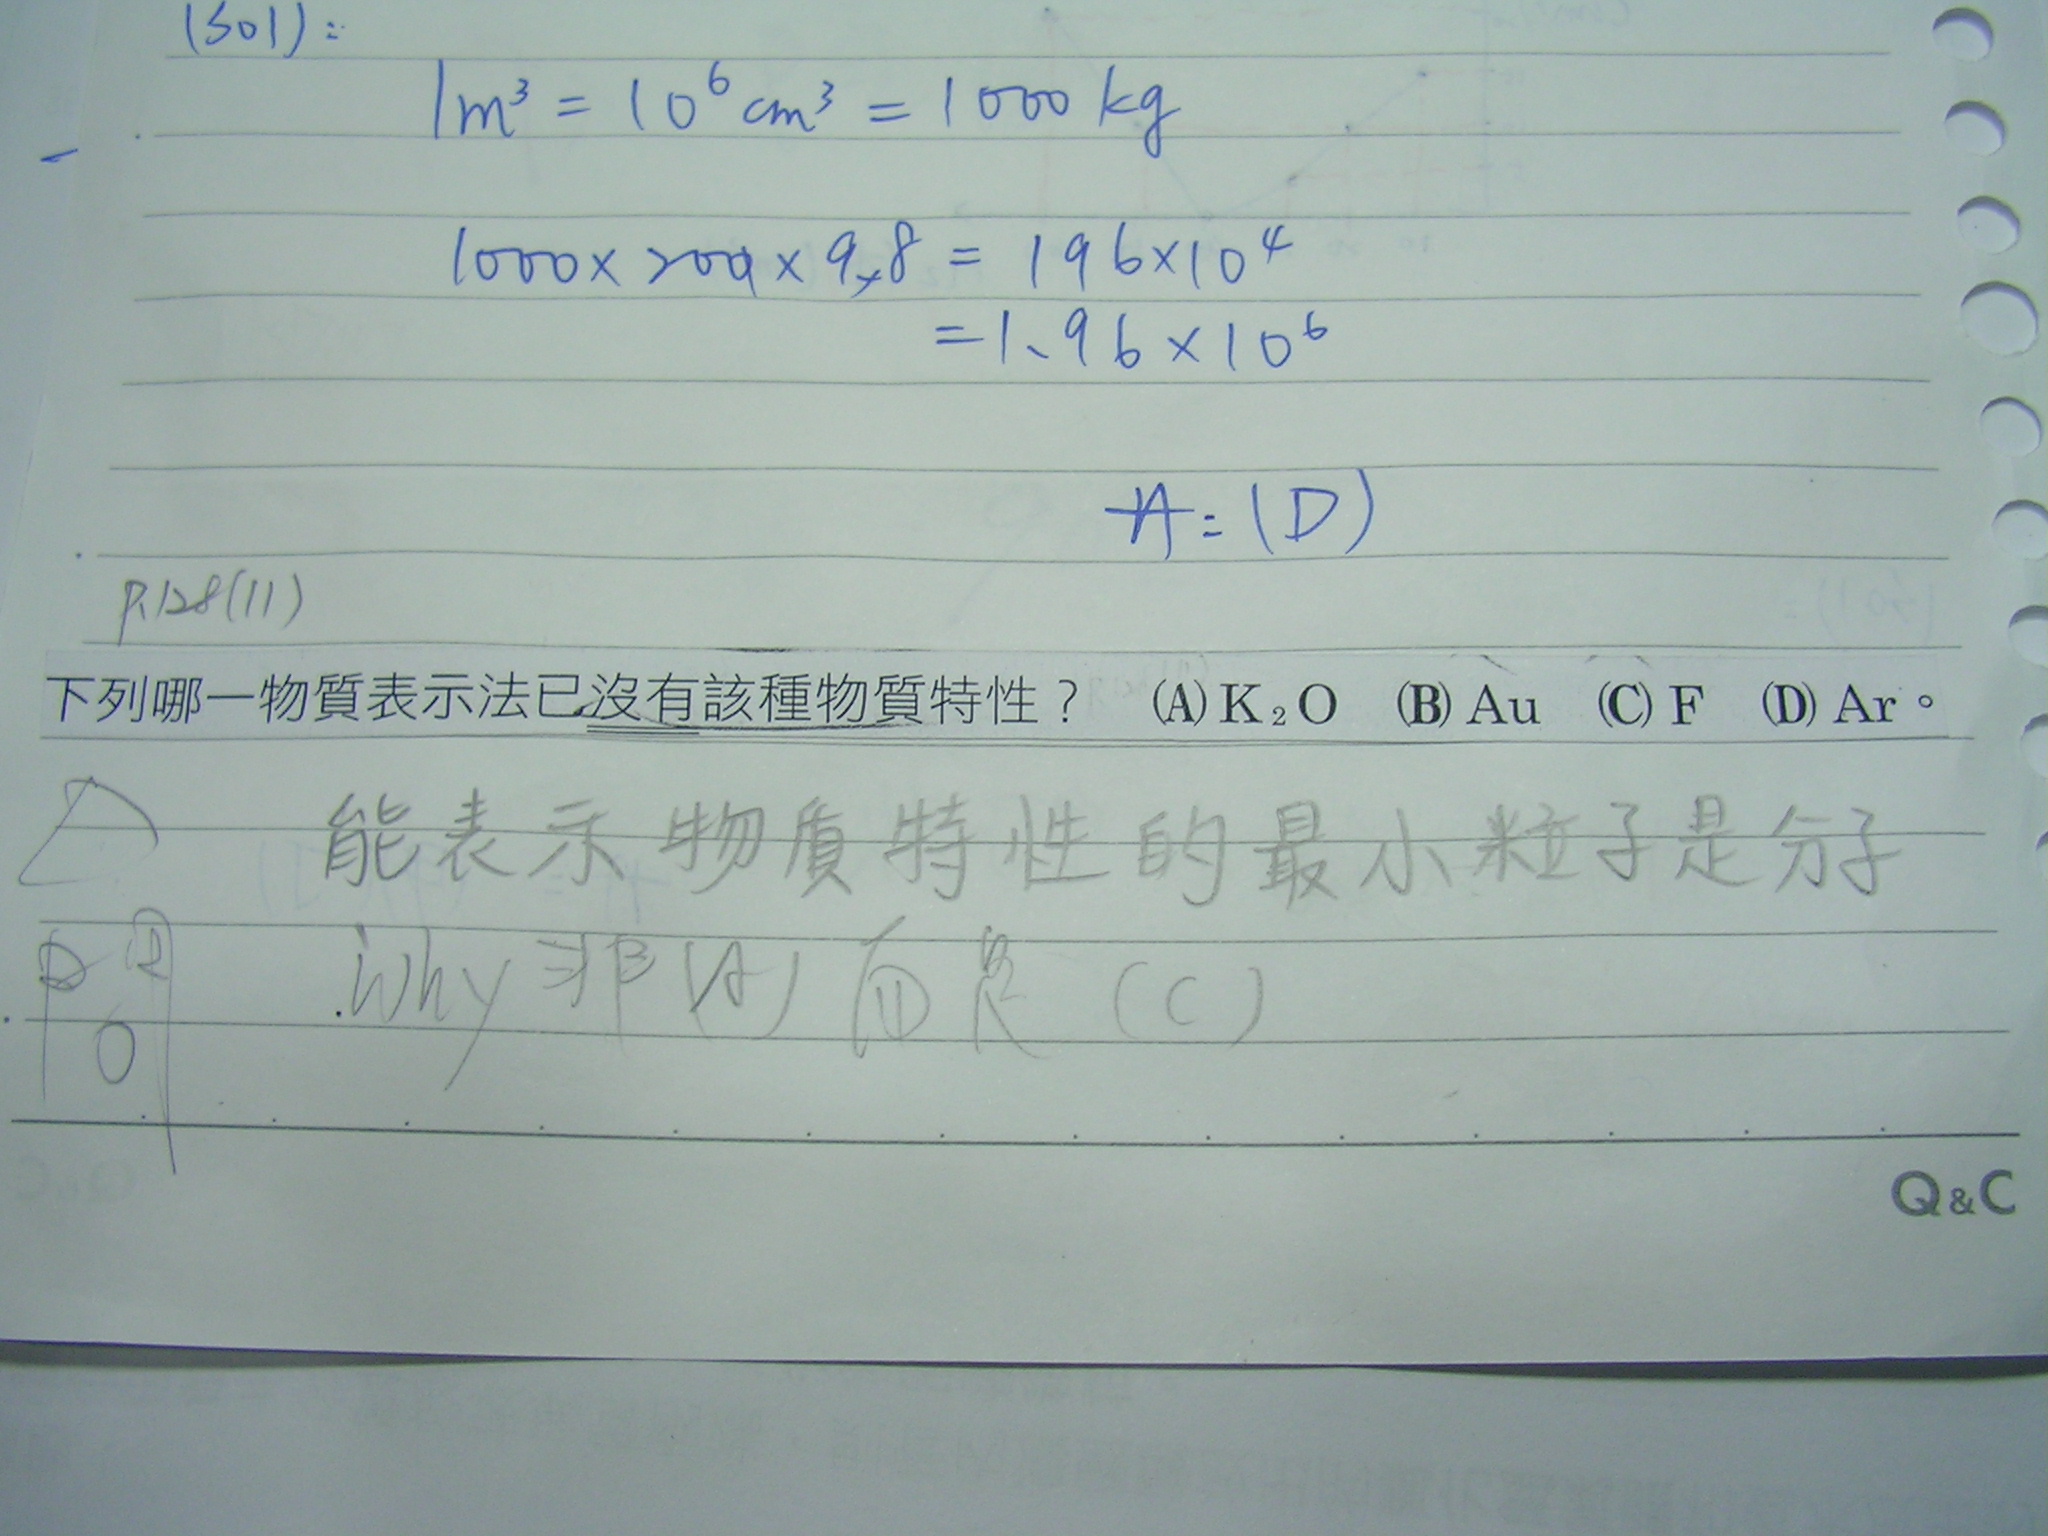 (Sol):
1m³ = 10⁶ cm³ = 1000 kg
1000 × 200 × 9.8 = 196×10⁴
=1.96×10⁶
A:(D)
P.128(11)
下列哪一物質表示法已沒有該種物質特性？ (A) K₂O (B) Au (C) F (D) Ar。
能表示物質特性的最小粒子是分子
Why 非(A) 而是 (C)
Q&C